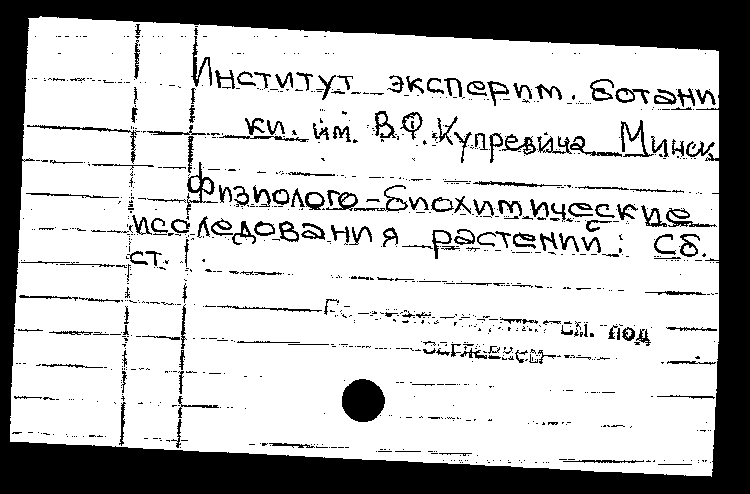 Институт эксперим. ботани
ки. им. В.Ф. Купревича Минск
Физиолого-биохимические
исследования растений: Сб.
ст.
см. под
заглавием